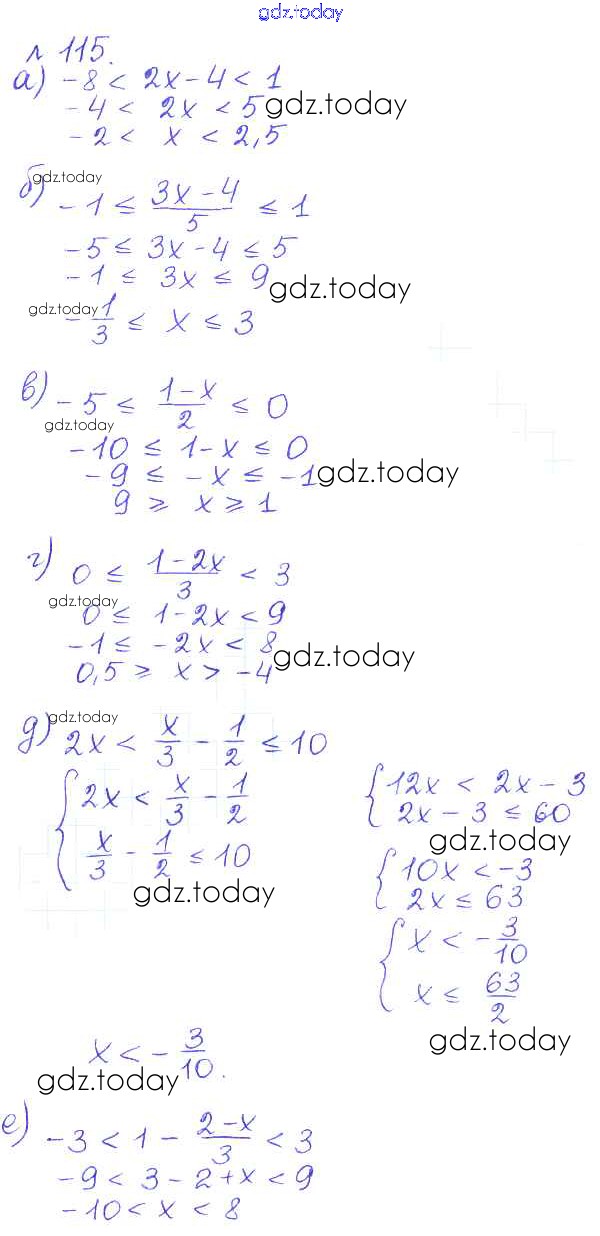 gdz.today
№ 115.
а) -8 < 2x - 4 < 1
-4 < 2x < 5 gdz.today
-2 < x < 2,5
gdz.today
б) -1 ≤ (3x - 4)/5 ≤ 1
-5 ≤ 3x - 4 ≤ 5
-1 ≤ 3x ≤ 9 gdz.today
gdz.today -1/3 ≤ x ≤ 3
в) -5 ≤ (1-x)/2 ≤ 0
gdz.today
-10 ≤ 1-x ≤ 0
-9 ≤ -x ≤ -1 gdz.today
9 ≥ x ≥ 1
г) 0 ≤ (1-2x)/3 < 3
gdz.today
0 ≤ 1-2x < 9
-1 ≤ -2x < 8 gdz.today
0,5 ≥ x > -4
gdz.today
д) 2x < x/3 - 1/2 ≤ 10
{ 2x < x/3 - 1/2
x/3 - 1/2 ≤ 10
gdz.today
{ 12x < 2x - 3
2x - 3 ≤ 60
gdz.today
{ 10x < -3
2x ≤ 63
{ x < -3/10
x ≤ 63/2
gdz.today
x < -3/10.
gdz.today
е) -3 < 1 - (2-x)/3 < 3
-9 < 3 - 2 + x < 9
-10 < x < 8